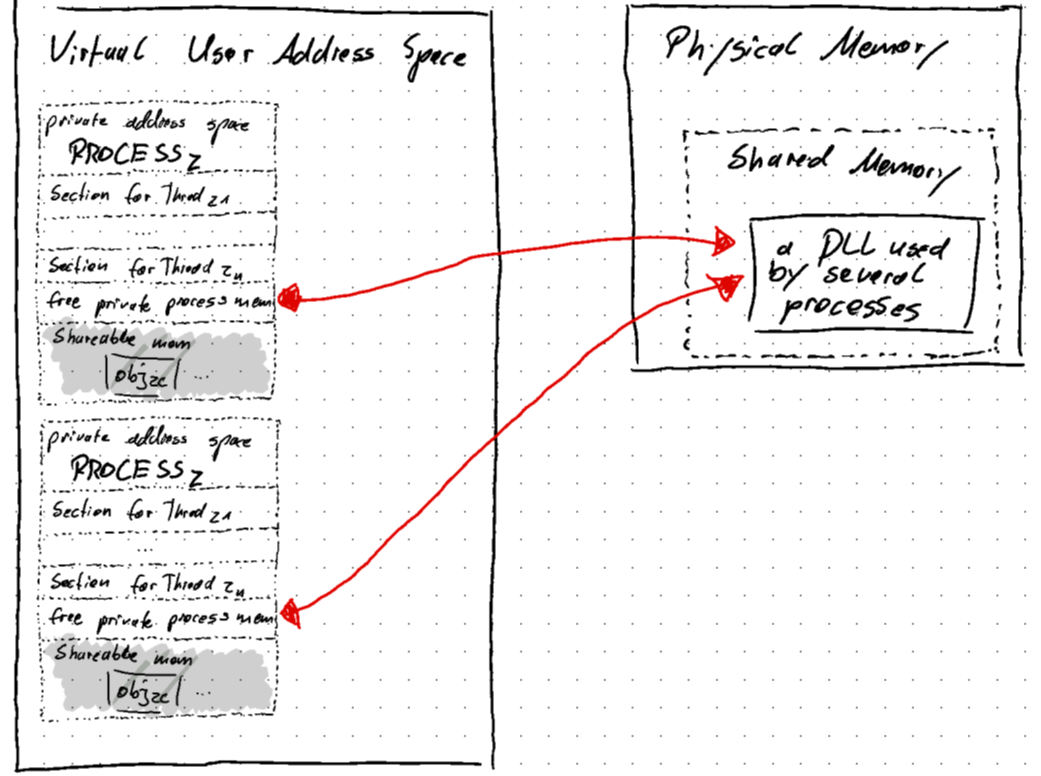 Virtual User Address Space
private address space
PROCESS z
Section for Thread z1
....
Section for Thread zn
free private process mem
Shareable mem
obj ze ...
private address space
PROCESS z
Section for Thread z1
...
Section for Thread zn
free private process mem
Shareable mem
obj ze ...
Physical Memory
Shared Memory
a DLL used
by several
processes